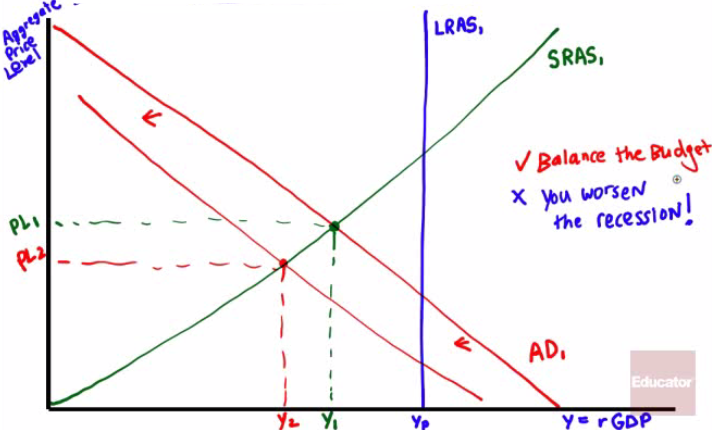 Aggregate
Price
Level
LRAS₁
SRAS₁
✓ Balance the Budget
x You worsen
the recession!
PL₁
PL2
AD₁
Educator
Y₂
Y₁
Yp
Y = rGDP